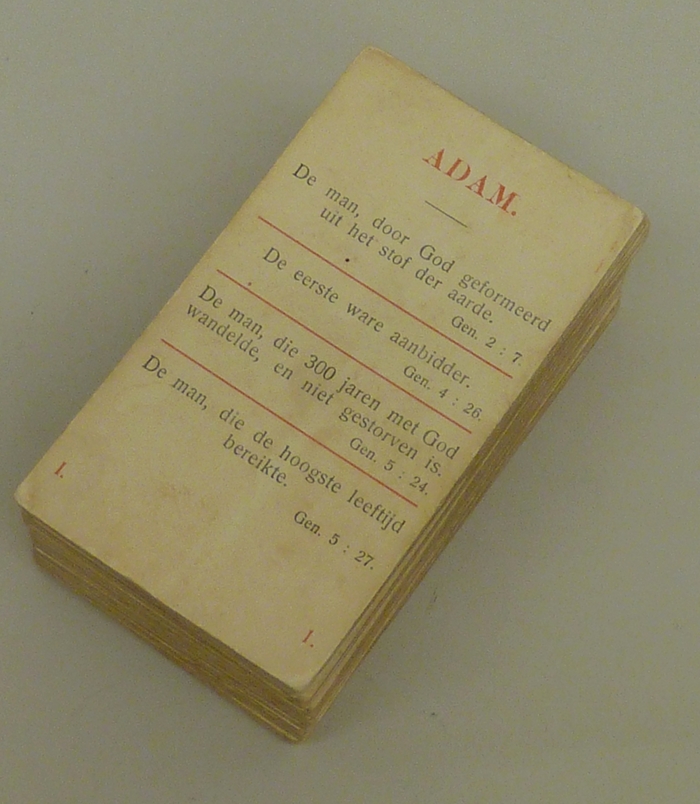 ADAM.
De man, door God geformeerd
uit het stof der aarde.
Gen. 2 : 7.
De eerste ware aanbidder.
Gen. 4 : 26.
De man, die 300 jaren met God
wandelde, en niet gestorven is.
Gen. 5 : 24.
De man, die de hoogste leeftijd
bereikte.
Gen. 5 : 27.
1.
1.